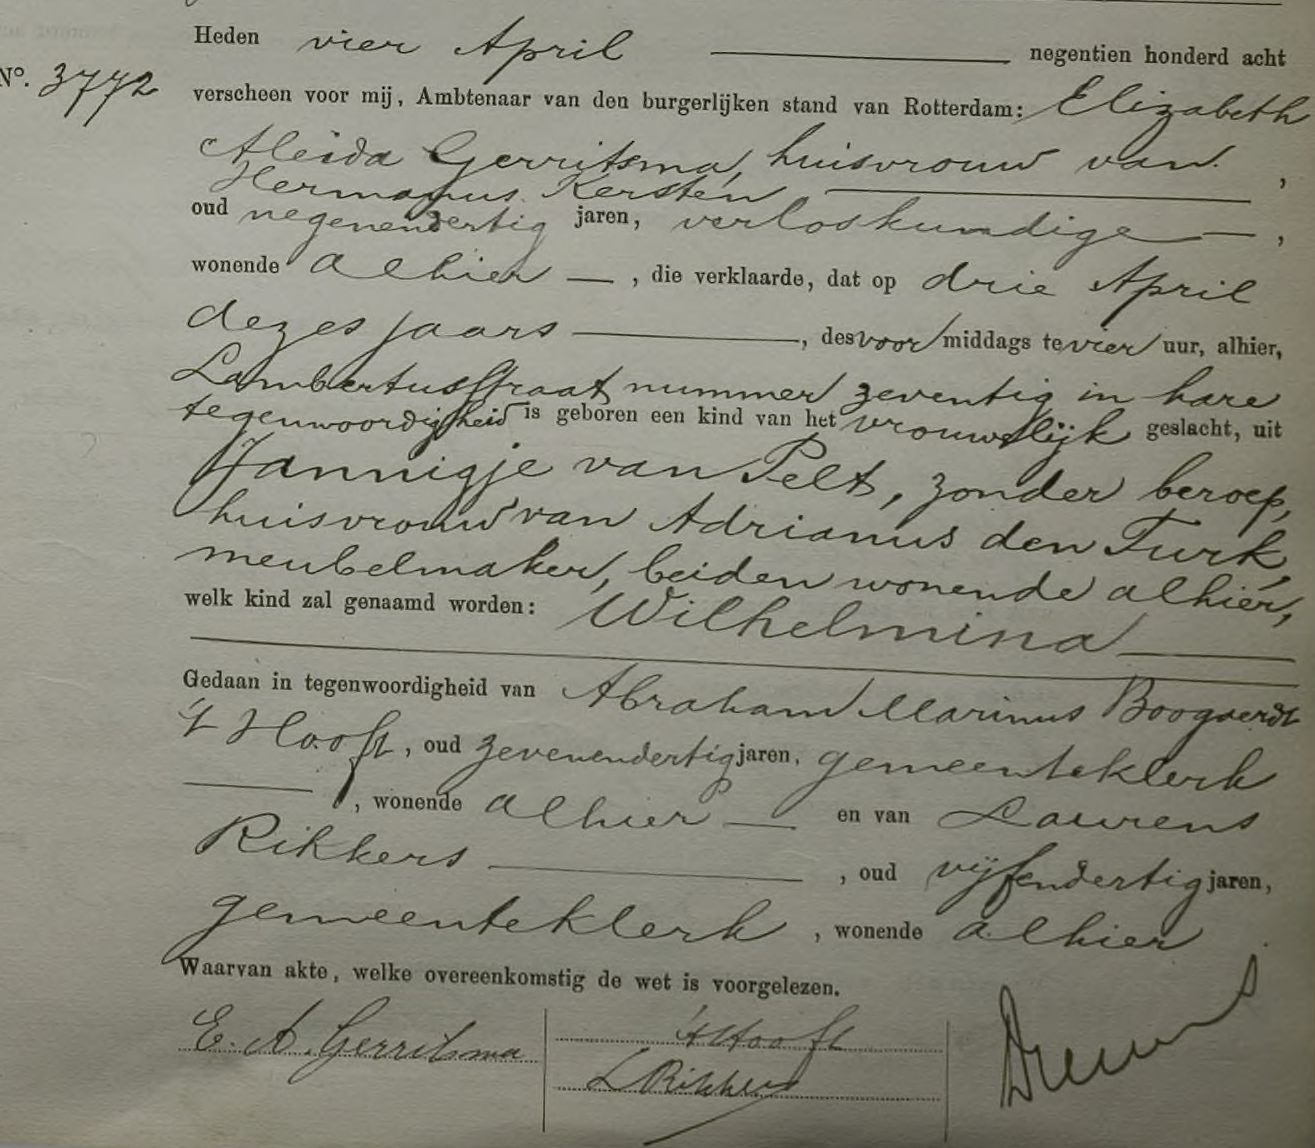 Heden vier April negentien honderd acht
No. 3772 verscheen voor mij, Ambtenaar van den burgerlijken stand van Rotterdam: Elizabeth
Aleida Gerritsma, huisvrouw van
Hermanus Kersten,
oud negenendertig jaren, verloskundige,
wonende alhier, die verklaarde, dat op drie April
dezes jaars, des voor middags te vier uur, alhier,
Lambertusstraat nummer zeventig in hare
tegenwoordigheid is geboren een kind van het vrouwelijk geslacht, uit
Jannigje van Pelt, zonder beroep,
huisvrouw van Adrianus den Turk,
meubelmaker, beiden wonende alhier,
welk kind zal genaamd worden: Wilhelmina
Gedaan in tegenwoordigheid van Abraham Marinus Boogaerdt
't Hooft, oud zevenendertig jaren, gemeenteklerk
, wonende alhier en van Laurens
Rikkers, oud vijfendertig jaren,
gemeenteklerk, wonende alhier
Waarvan akte, welke overeenkomstig de wet is voorgelezen.
E. A. Gerritsma
't Hooft
L Rikkers